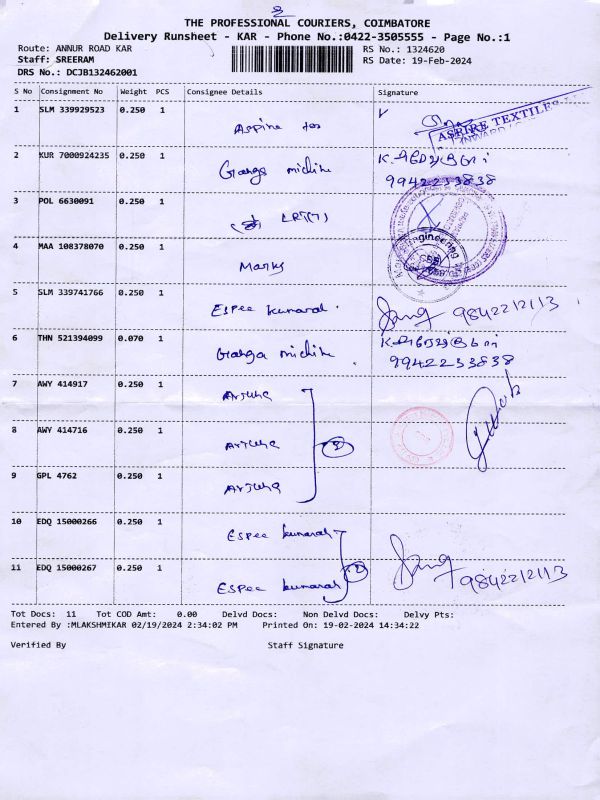 THE PROFESSIONAL COURIERS, COIMBATORE
Delivery Runsheet - KAR - Phone No.:0422-3505555 - Page No.:1
Route: ANNUR ROAD KAR RS No.: 1324620
Staff: SREERAM RS Date: 19-Feb-2024
DRS No.: DCJB132462001
S No Consignment No Weight PCS Consignee Details Signature
1 SLM 339929523 0.250 1 Aspire tex
ASPIRE TEXTILES
INWARD
2 KUR 7000924235 0.250 1 Ganga
9942233838
3 POL 6630091 0.250 1
4 MAA 108378070 0.250 1 Marks
Engineering
5 SLM 339741766 0.250 1 Espee kumaral 9842212113
6 THN 521394099 0.070 1 Ganga
9942233838
7 AWY 414917 0.250 1 Arjuna
8 AWY 414716 0.250 1 Arjuna
9 GPL 4762 0.250 1 Arjuna
10 EDQ 15000266 0.250 1 Espee kumaral
11 EDQ 15000267 0.250 1 Espee kumaral 9842212113
Tot Docs: 11 Tot COD Amt: 0.00 Delvd Docs: Non Delvd Docs: Delvy Pts:
Entered By :MLAKSHMIKAR 02/19/2024 2:34:02 PM Printed On: 19-02-2024 14:34:22
Verified By Staff Signature